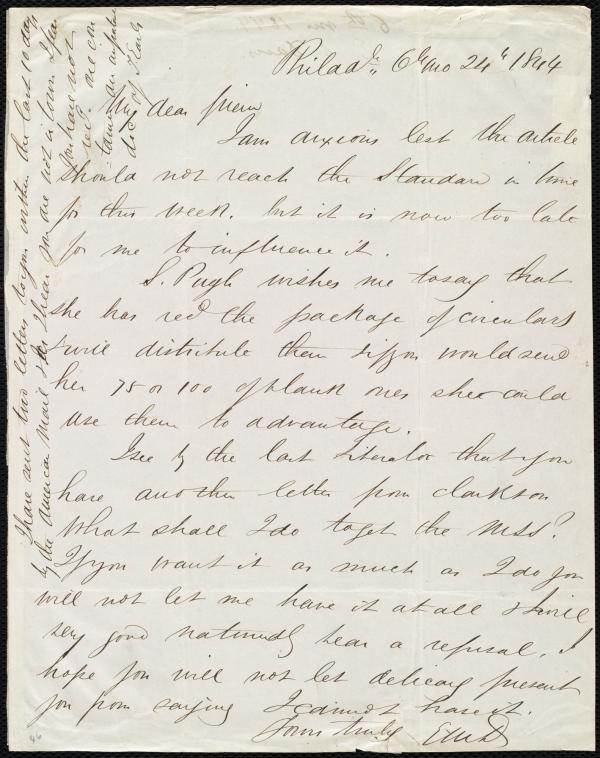 Philada., 6th mo 24th 1844
My dear friend
I am anxious lest the article
should not reach the Standard in time
for this week. but it is now too late
for me to influence it.
S. Pugh wishes me to say that
she has recd the package of circulars
& will distribute them & if you would send
her 75 or 100 of blank ones she could
use them to advantage.
I see by the last Liberator that you
have another letter from Clarkson
What shall I do to get the MSS?
If you want it as much as I do you
will not let me have it at all & I will
very good naturedly bear a refusal. I
hope you will not let delicacy prevent
you from saying I cannot have it.
Yours truly EMD
I have sent two letters to you within the last 10 days
by the American Mail & as I hear you are not in town I fear
you have not
recd.